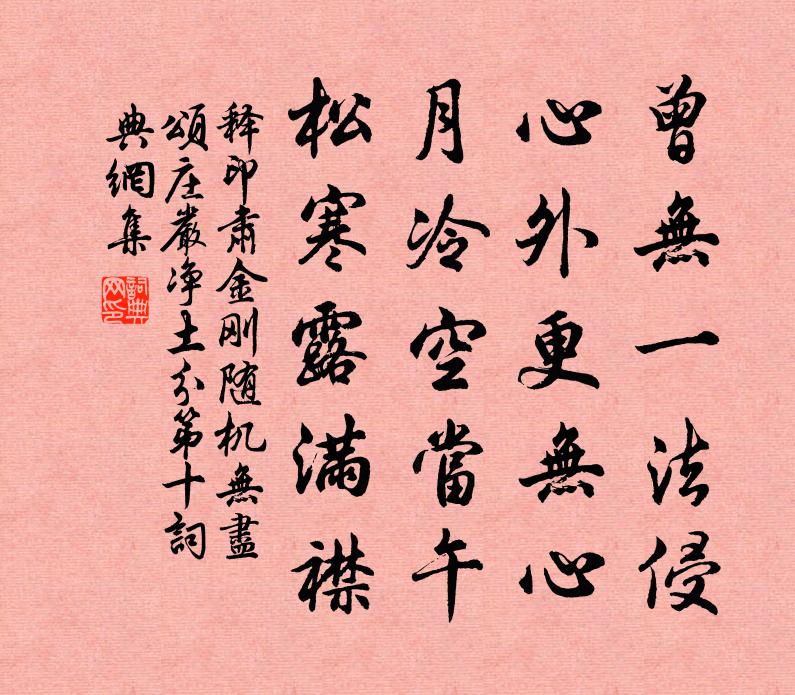 曾無一法侵
心外更無心
月冷空當午
松寒露滿襟
释印肃金刚随机無盡
頌庄嚴净土分第十詞
典網集
詞典
网印